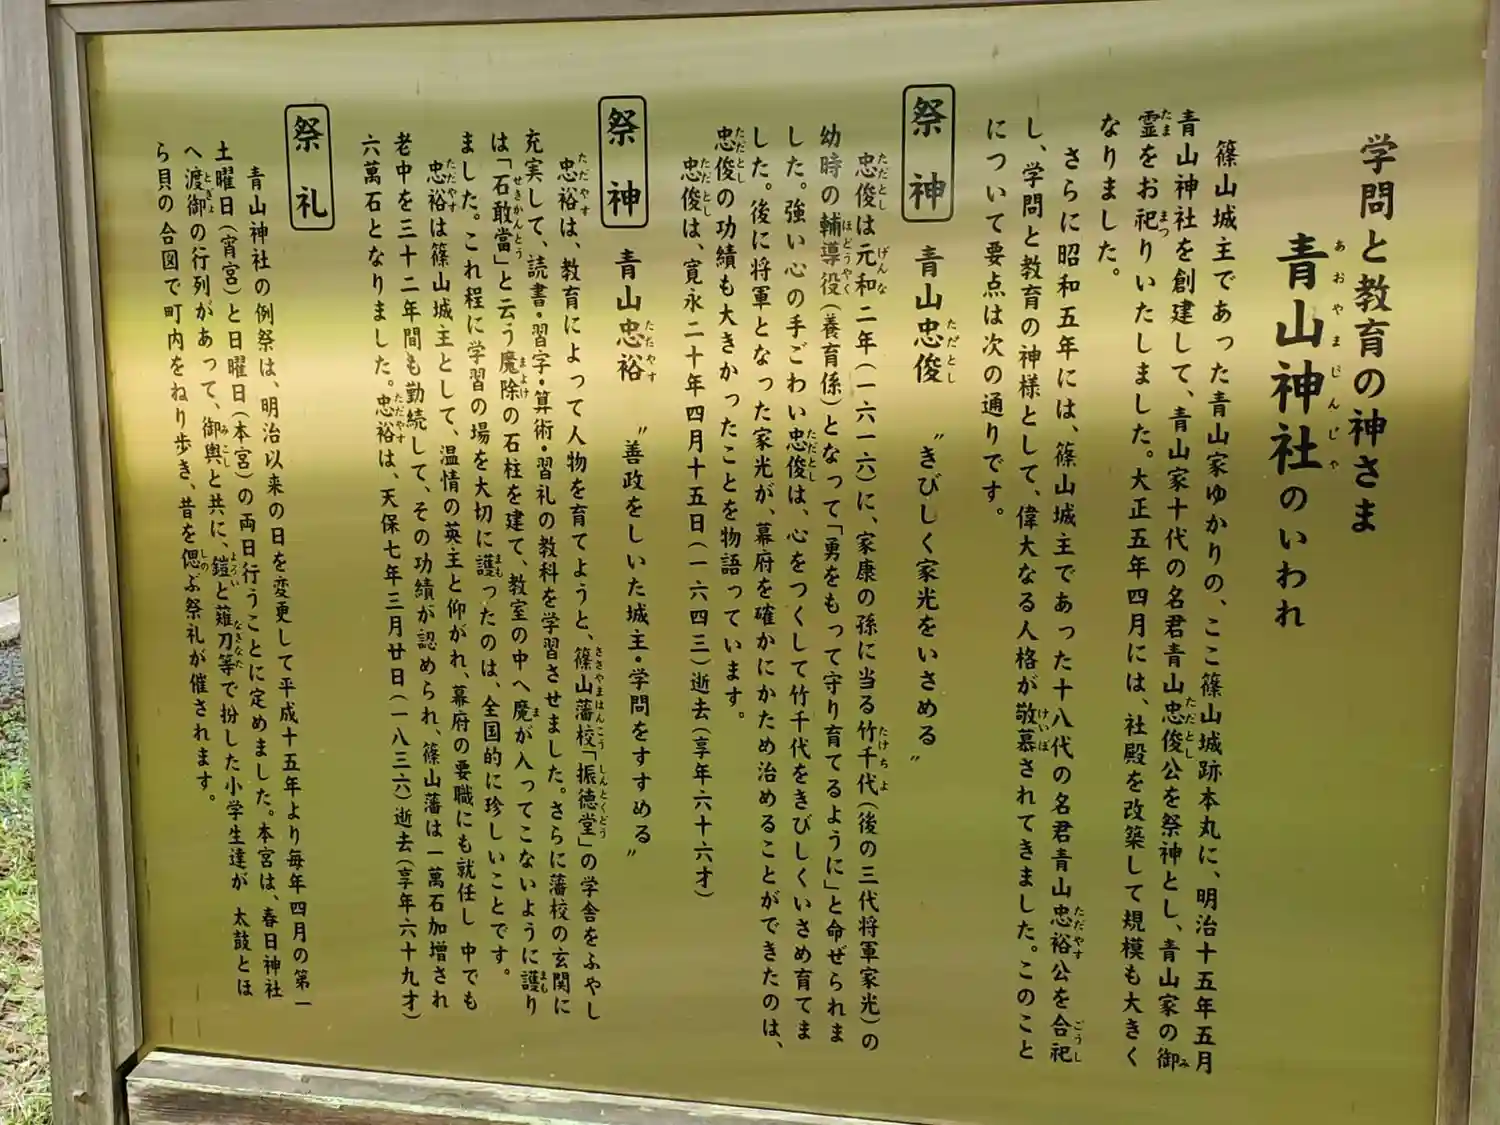 学問と教育の神さま
青山神社のいわれ
篠山城主であった青山家ゆかりの、ここ篠山城跡本丸に、明治十五年五月
青山神社を創建して、青山家十代の名君青山忠俊公を祭神とし、青山家の御
霊をお祀りいたしました。大正五年四月には、社殿を改築して規模も大きく
なりました。
さらに昭和五年には、篠山城主であった十八代の名君青山忠裕公を合祀
し、学問と教育の神様として、偉大なる人格が敬慕されてきました。このこと
について要点は次の通りです。
祭神 青山忠俊 〝きびしく家光をいさめる〟
忠俊は元和二年(一六一六)に、家康の孫に当る竹千代(後の三代将軍家光)の
幼時の輔導役(養育係)となって「勇をもって守り育てるように」と命ぜられま
した。強い心の手ごわい忠俊は、心をつくして竹千代をきびしくいさめ育てま
した。後に将軍となった家光が、幕府を確かにかため治めることができたのは、
忠俊の功績も大きかったことを物語っています。
忠俊は、寛永二十年四月十五日(一六四三)逝去(享年六十六才)
祭神 青山忠裕 〝善政をしいた城主・学問をすすめる〟
忠裕は、教育によって人物を育てようと、篠山藩校「振徳堂」の学舎をふやし
充実して、読書・習字・算術・習礼の教科を学習させました。さらに藩校の玄関に
は「石敢當」と云う魔除の石柱を建て、教室の中へ魔が入ってこないように護り
ました。これ程に学習の場を大切に護ったのは、全国的に珍しいことです。
忠裕は篠山城主として、温情の英主と仰がれ、幕府の要職にも就任し 中でも
老中を三十二年間も勤続して、その功績が認められ、篠山藩は一萬石加増され
六萬石となりました。忠裕は、天保七年三月廿日(一八三六)逝去(享年六十九才)
祭礼
青山神社の例祭は、明治以来の日を変更して平成十五年より毎年四月の第一
土曜日(宵宮)と日曜日(本宮)の両日行うことに定めました。本宮は、春日神社
へ渡御の行列があって、御輿と共に、鎧と薙刀等で扮した小学生達が 太鼓とほ
ら貝の合図で町内をねり歩き、昔を偲ぶ祭礼が催されます。